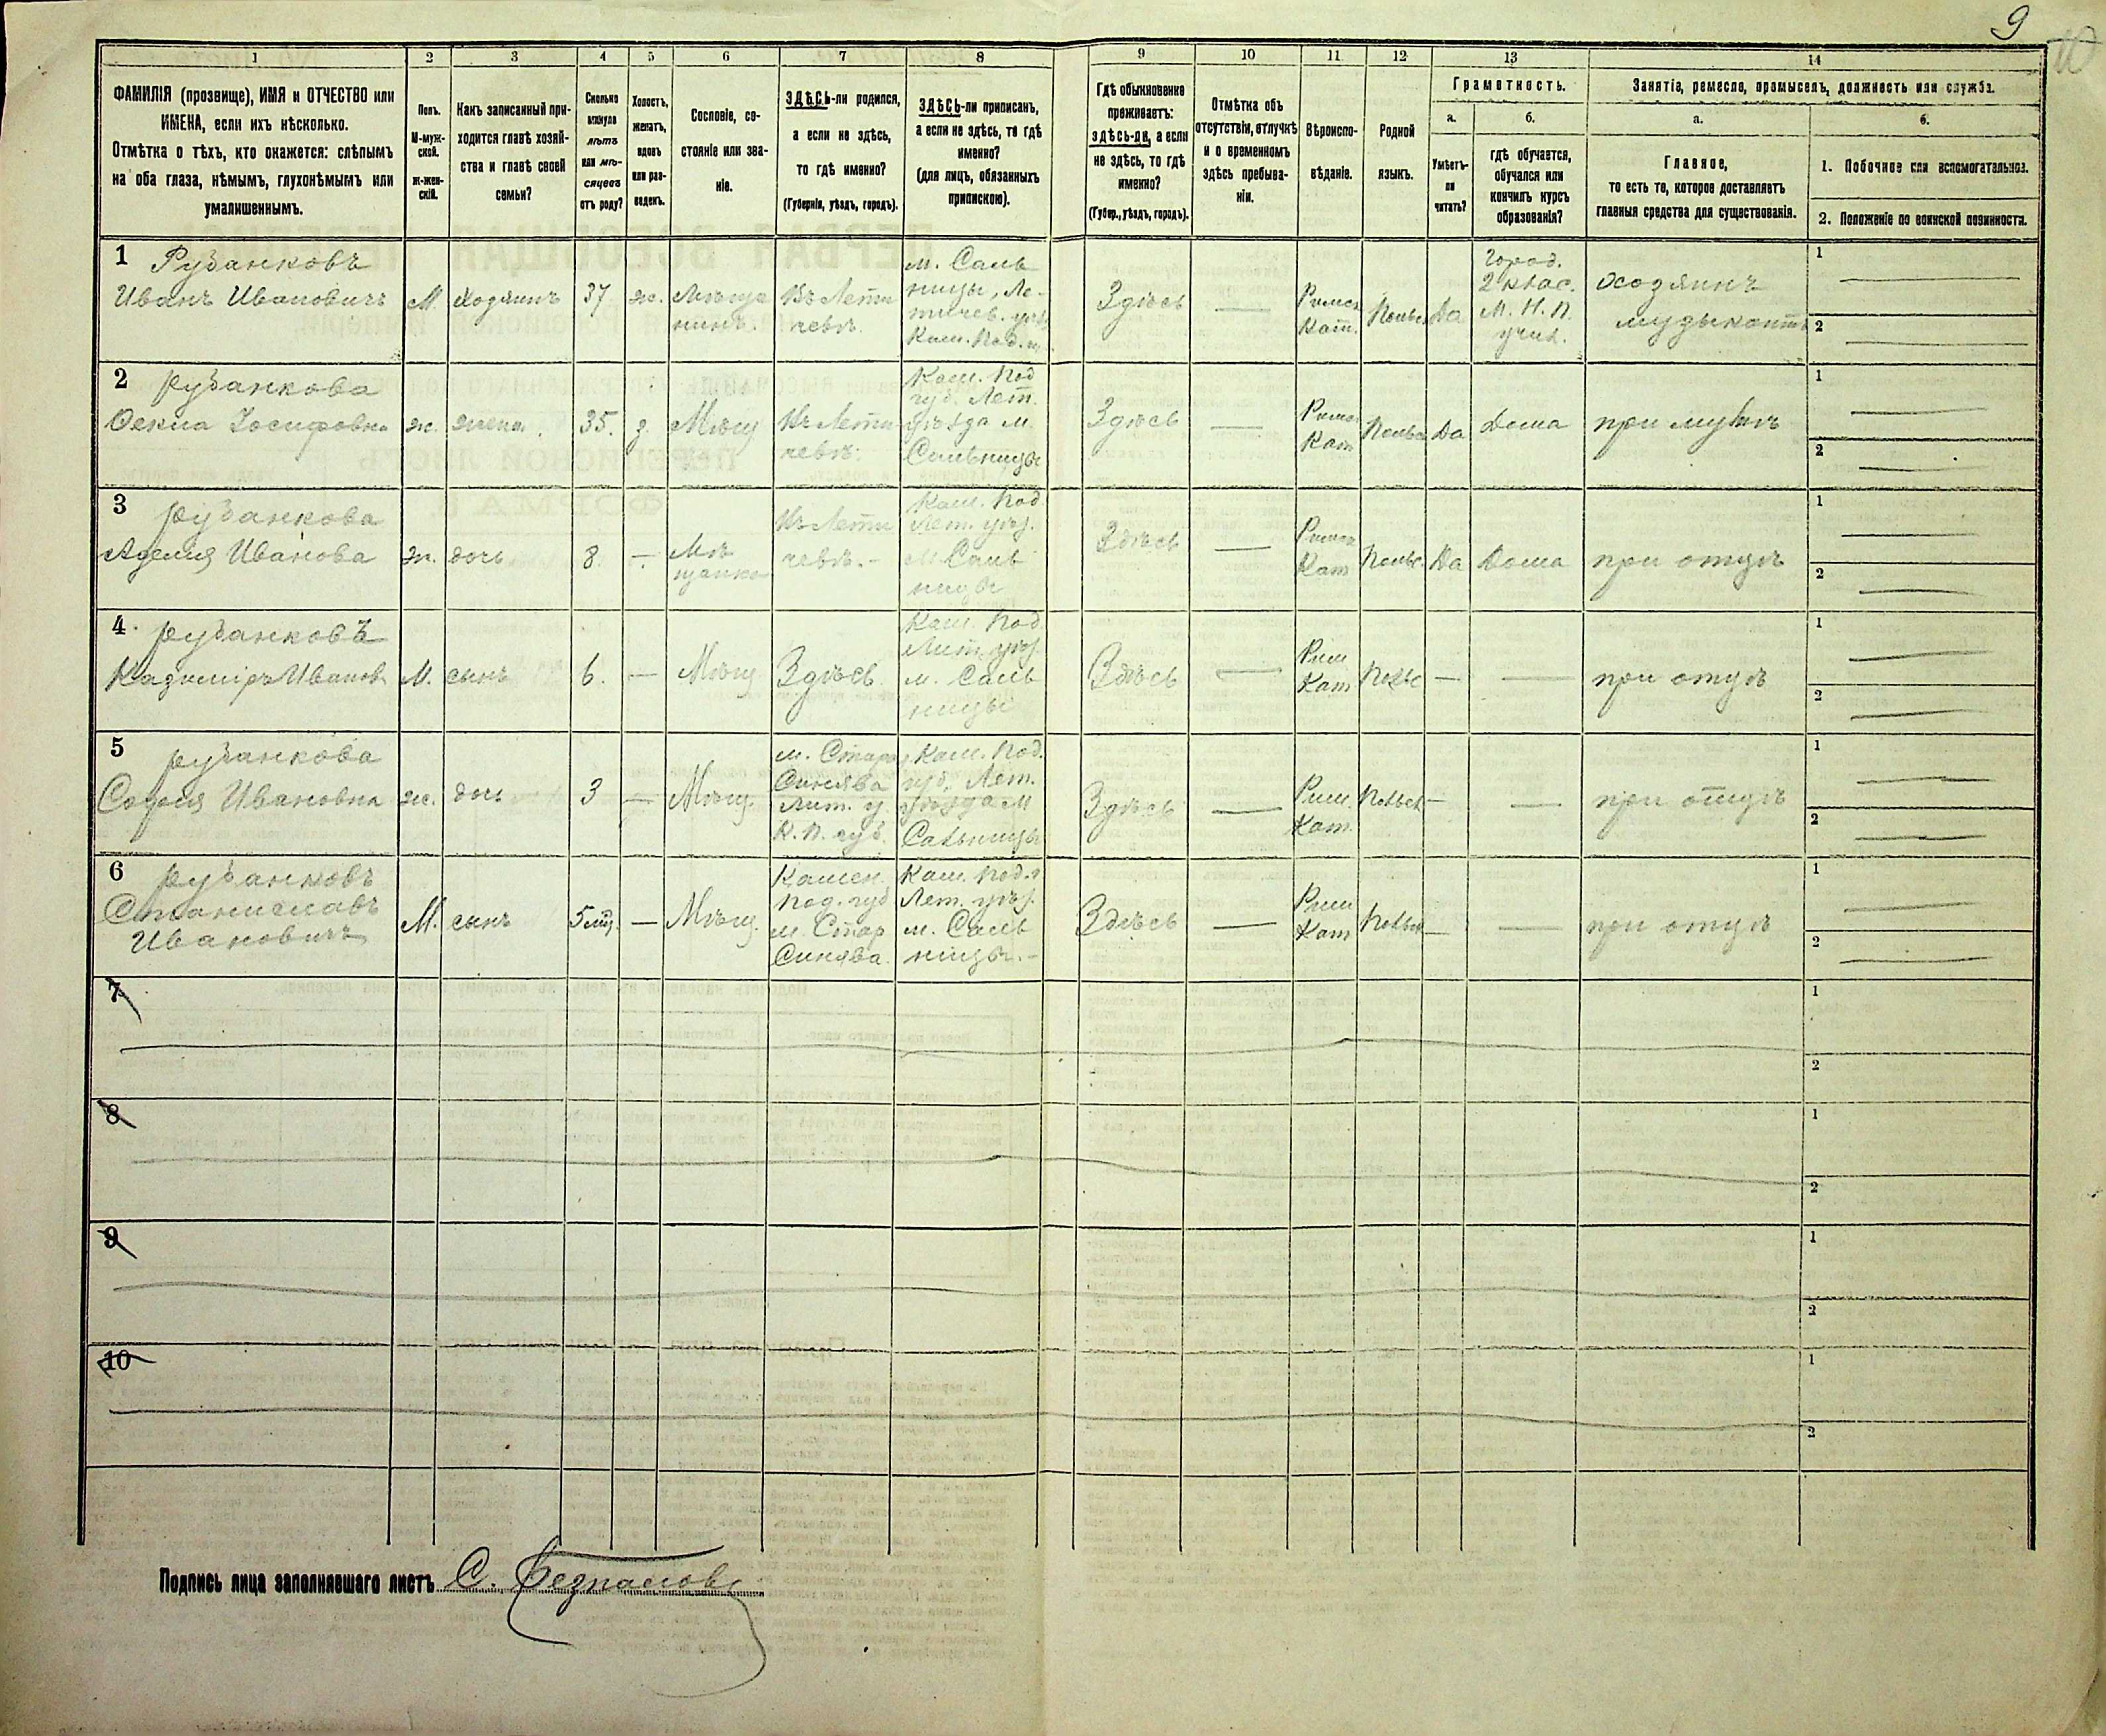 9
10
1
2
3
4
5
6
7
8
9
10
11
12
13
14
ФАМИЛІЯ (прозвище), ИМЯ и ОТЧЕСТВО или
ИМЕНА, если ихъ нѣсколько.
Отмѣтка о тѣхъ, кто окажется: слѣпымъ
на оба глаза, нѣмымъ, глухонѣмымъ или
умалишеннымъ.
Полъ.
М-муж-
ской.
ж-жен-
скій.
Какъ записанный при-
ходится главѣ хозяй-
ства и главѣ своей
семьи?
Сколько
минуло
лѣтъ
или мѣ-
сяцевъ
отъ роду?
Холостъ,
женатъ,
вдовъ
или раз-
веденъ.
Сословіе, со-
стояніе или зва-
ніе.
ЗДѢСЬ-ли родился,
а если не здѣсь,
то гдѣ именно?
(Губернія, уѣздъ, городъ).
ЗДѢСЬ-ли приписанъ,
а если не здѣсь, то гдѣ
именно?
(для лицъ, обязанныхъ
припискою).
Гдѣ обыкновенно
проживаетъ:
здѣсь-ли, а если
не здѣсь, то гдѣ
именно?
(Губер., уѣздъ, городъ).
Отмѣтка объ
отсутствіи, отлучкѣ
и о временномъ
здѣсь пребыва-
ніи.
Вѣроиспо-
вѣданіе.
Родной
языкъ.
Грамотность.
а.
Умѣетъ-
ли
читать?
б.
гдѣ обучается,
обучался или
кончилъ курсъ
образованія?
Занятіе, ремесло, промыселъ, должность или служба.
а.
Главное,
то есть то, которое доставляетъ
главныя средства для существованія.
б.
1. Побочное или вспомогательное.
2. Положеніе по воинской повинности.
1 Рубанковъ
Иванъ Ивановичъ
М.
Хозяинъ
37
ж.
Мѣща
нинъ.
Въ Лети
чевѣ.
м. Саль
ницы, Ле-
тичев. уѣз
Кам. Под. г.
Здѣсь
—
Римск
Кат.
Польс.
Да
Город.
2 клас.
М. Н. П.
учил.
Хозяинъ
музыкантъ
1 —
2 —
2 Рубанкова
Фекла Іосифовна
ж.
жена.
35.
з.
Мѣщ
Въ Лети
чевѣ.
Кам. Под
губ. Лет.
уѣзда м.
Сальницы
Здѣсь
—
Римс
Кат
Польс
Да
Дома
при мужѣ
1 —
2 —
3 Рубанкова
Аделия Иванова
ж.
дочь
8.
—
Мѣ
щанка
Въ Лети
чевѣ.-
Кам. Под
Лет. уѣз.
м Саль
ницы
Здѣсь
—
Римск
Кат
Польс.
Да
Дома
при отцѣ
1 —
2 —
4 Рубанковъ
Казиміръ Иванов
М.
сынъ
6.
—
Мѣщ
Здѣсь
Кам. Под
Лет. уѣз.
м. Саль
ницы
Здѣсь
—
Рим
Кат
Польс
—
—
при отцѣ
1 —
2 —
5 Рубанкова
Софья Ивановна
ж.
дочь
3
—
Мѣщ.
м. Стара
Синява
Лит. у.
К. П. губ.
Кам. Под.
губ. Лет.
уѣзда м
Сальницы
Здѣсь
—
Рим.
Кат.
Польск
—
—
при отцѣ
1 —
2 —
6 Рубанковъ
Станиславъ
Ивановичъ
М.
сынъ
5 мѣс.
—
Мѣщ.
Камен.
Под. губ
м. Стар
Синява.
Кам. Под. г
Лет. уѣз.
м. Саль
ницы.-
Здѣсь
—
Рим
Кат
Польск
—
—
при отцѣ
1 —
2 —
7
1
2
8
1
2
9
1
2
10
1
2
Подпись лица заполнявшаго листъ С.